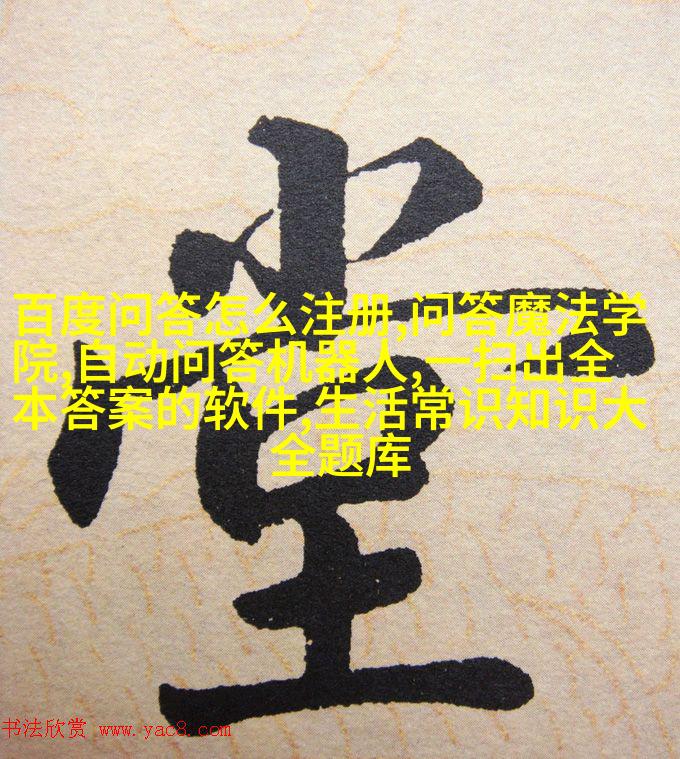 堂
百度问答怎么注册,问答魔法学
院,自动问答机器人,一扫出全
本答案的软件,生活常识知识大
全题库
书法欣赏 www.yac8.com